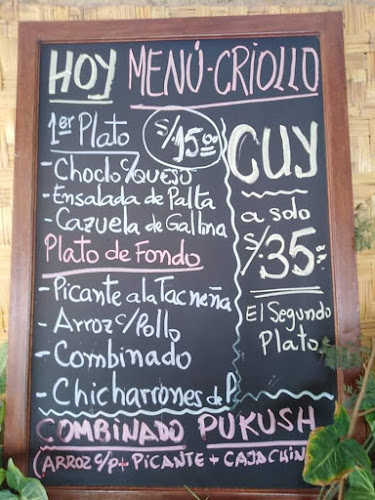 HOY MENÚ-CRIOLLO
1er Plato
S/.15.00
- Choclo c/queso
- Ensalada de Palta
- Cazuela de Gallina
Plato de Fondo
- Picante a la Tacneña
- Arroz c/Pollo
- Combinado
- Chicharrones de P
CUY
a solo
S/.35.-
El Segundo
Plato.
COMBINADO PUKUSH
(ARROZ C/P + PICANTE + CAJACHIN